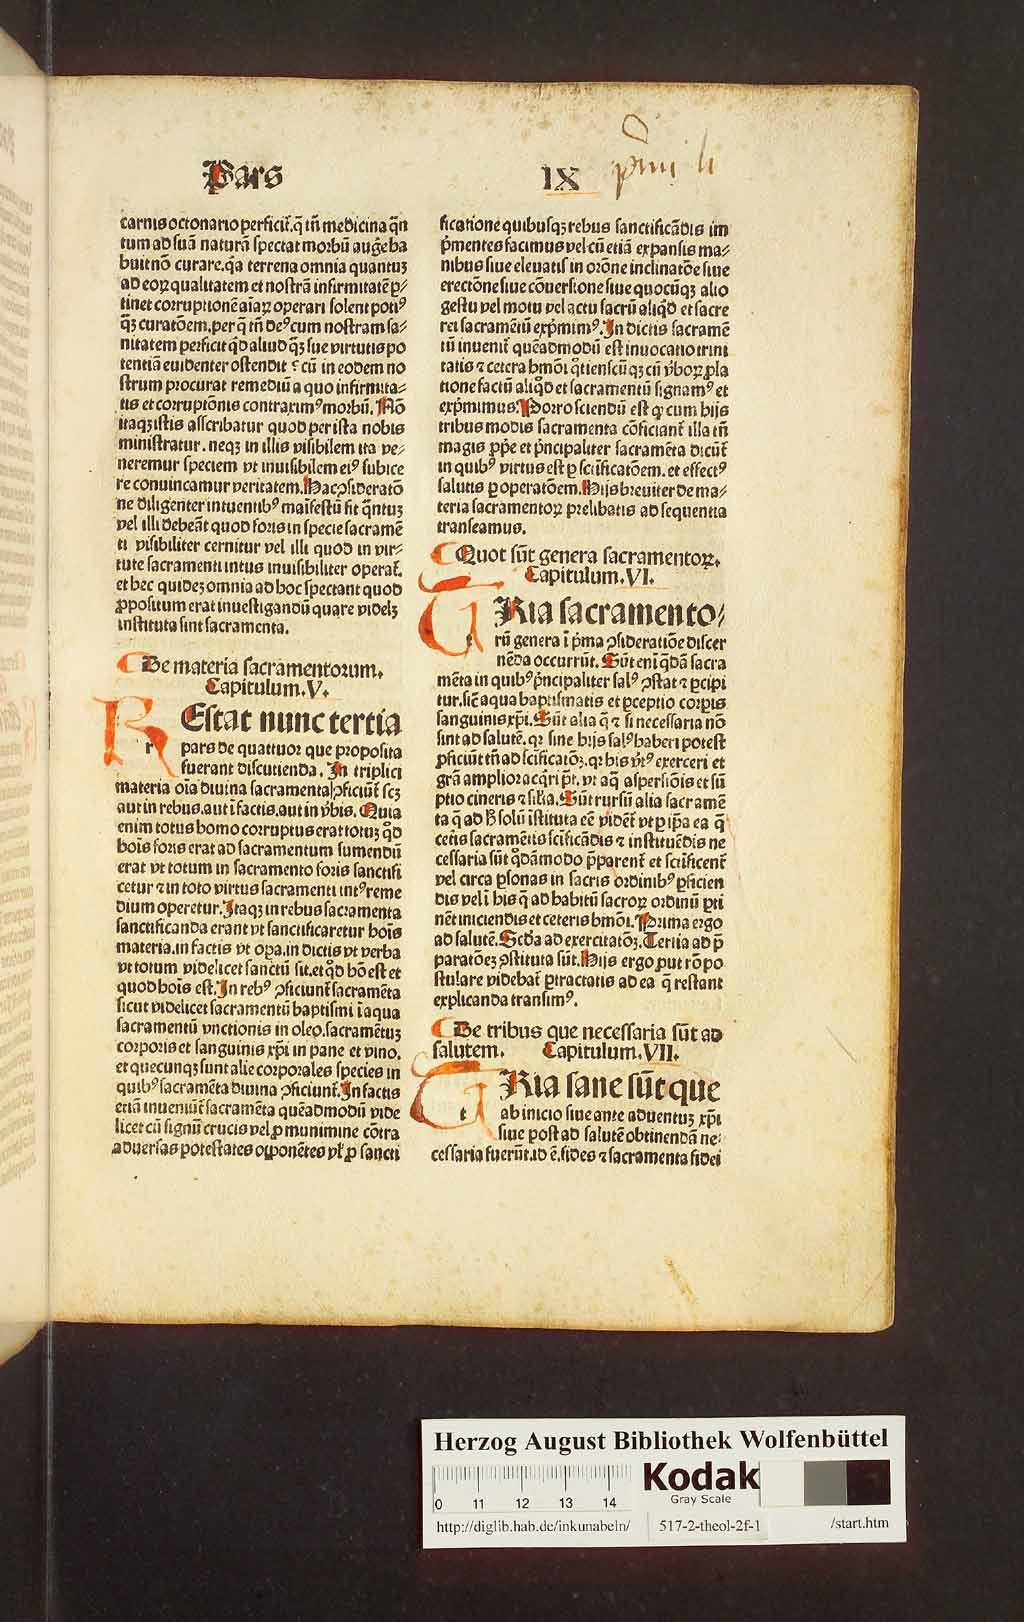 Pars IX
carnis octonario perficit̃. q̃ tñ medicina q̃n
tum ad suã naturã spectat morbũ augẽ ha
buit nõ curare. q̃a terrena omnia quantuꝫ
ad eoꝝ qualitatem et nostrã infirmitatẽ ꝑ⸗
tinet corruptionẽ aĩaꝝ operari solent potiꝰ
q̃ꝫ curatõem. per q̃ tñ deꝰ cum nostram sa⸗
nitatem perficit q̃d aliud q̃ꝫ sue virtutis po
tentiã euidenter ostendit ⁊ cũ in eodem no
strum procurat remediũ a quo infirmita⸗
tis et corruptõnis contraximꝰ morbũ. Nõ
itaqꝫ istis asscribatur quod per ista nobis
ministratur. neqꝫ in illis visibilem ita ve⸗
neremur speciem vt inuisibilem eiꝰ subice
re conuincamur veritatem. Hac ꝯsideratõ
ne diligenter intuentibꝰ maĩfestũ fit q̃ntuꝫ
vel illi debeãt quod foris in specie sacramẽ
ti visibiliter cernitur vel illi quod in vir⸗
tute sacramenti intus inuisibiliter operat̃.
et hec quideꝫ omnia ad hoc spectant quod
ꝓpositum erat inuestigandũ quare videlꝫ
instituta sint sacramenta.
De materia sacramentorum.
Capitulum.V.
REstat nunc tertia
pars de quattuor que proposita
fuerant discutienda. In triplici
materia oĩa diuina sacramenta ꝑficiũt̃ scꝫ
aut in rebus. aut ĩ factis. aut in v̾bis. Quia
enim totus homo corruptus erat totuꝫ q̊d
hoĩs foris erat ad sacramentum sumendũ
erat vt totum in sacramento foris sanctifi
cetur ⁊ in toto virtus sacramenti intꝰ reme
dium operetur. Itaqꝫ in rebus sacramenta
sanctificanda erant vt sanctificaretur hoĩs
materia. in factis vt oꝑa. in dictis vt verba
vt totum videlicet sanctũ sit. et q̊d hõ est et
quod hoĩs est. In rebꝰ ꝯficiunt̃ sacramẽta
sicut videlicet sacramentũ baptismi ĩ aqua
sacramentũ vnctionis in oleo. sacramẽtuꝫ
corporis et sanguinis xp̃i in pane et vino.
et quecunqꝫ sunt alie corporales species in
quibꝰ sacramẽta diuina ꝯficiunt̃. In factis
etiã inueniũt̃ sacramẽta quẽadmodũ vide
licet cũ signũ crucis vel ꝓ munimine cõtra
aduersas potestates opponẽtes vl̃ ꝓ sancti
ficatione quibusqꝫ rebus sanctificãdis im
p̃mentes facimus vel cũ etiã expansis ma⸗
nibus siue eleuatis in orõne inclinatõe siue
erectõne siue cõuersione siue quocũqꝫ alio
gestu vel motu vel actu sacrũ aliq̊d et sacre
rei sacramẽtũ exp̃mimꝰ. In dictis sacramẽ
tũ inuenit̃ quẽadmodũ est inuocatio trini
tatis ⁊ cetera hmõi q̊tienscũqꝫ cũ v̾boꝝ ꝓla
tione factũ aliq̊d et sacramentũ signamꝰ et
exp̃mimus. Porro sciendũ est ꝙ cum hijs
tribus modis sacramenta cõficiant̃ illa tñ
magis ꝓpe et p̃ncipaliter sacramẽta dicũt̃
in quibꝰ virtus est ꝑ scĩficatõem. et effectꝰ
salutis ꝑ operatõem. Hijs breuiter de ma⸗
teria sacramentoꝝ prelibatis ad sequentia
transeamus.
Quot sũt genera sacramentoꝝ.
Capitulum.VI.
TRia sacramento⸗
rũ genera ĩ p̃ma ꝯsideratiõe discer
nẽda occurrũt. Sũt enĩ q̃dã sacra
mẽta in quibꝰ p̃ncipaliter salꝰ ꝯstat ⁊ ꝑcipi
tur. sicẽ aqua baptismatis et ꝑceptio corꝑis
sanguinis xp̃i. Sũt alia q̃ ⁊ si necessaria nõ
sint ad salutẽ. qꝛ sine hijs salꝰ haberi potest
ꝓficiũt tñ ad scĩficatõꝫ. qꝛ his v̾tꝰ exerceri et
grã amplior acq̃ri p̃t. vt aq̃ aspersiõis et sũ
ptio cineris ⁊ sil̃ia. Sũt rursũ alia sacramẽ
ta q̃ ad h̾ solũ ĩstituta eẽ vident̃ vt ꝑ ip̃a ea q̃
ceteris sacramẽtis scĩficãdis ⁊ instituẽdis ne
cessaria sũt q̊dãmodo p̃parent̃ et scĩficent̃
vel circa ꝑsonas in sacris ordinibꝰ ꝑficien
dis vel ĩ his q̃ ad habitũ sacroꝝ ordinũ ꝑti
nẽt iniciendis et ceteris hmõi. Prima ergo
ad salutẽ. Scd̾a ad exercitatõꝫ. Tertia ad p̃
paratõeꝫ ꝯstituta sũt. Hijs ergo ꝓut rõ po
stulare videbat̃ ꝑtractatis ad ea q̃ restant
explicanda transimꝰ.
De tribus que necessaria sũt ad
salutem. Capitulum.VII.
TRia sane sũt que
ab inicio siue ante aduentuꝫ xp̃i
siue post ad salutẽ obtinendã ne⸗
cessaria fuerũt. id ẽ. fides ⁊ sacramenta fidei
Herzog August Bibliothek Wolfenbüttel
Kodak
Gray Scale
0 11 12 13 14
http://diglib.hab.de/inkunabeln/ 517-2-theol-2f-1 /start.htm